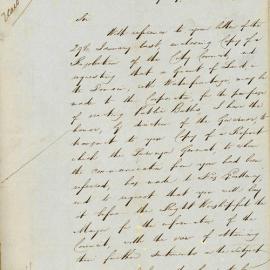 Sir
With reference to your letter of the
29th January last, enclosing Copy of a
Resolution of the City Council
requesting that a Grant of Land in
the Domain, with Water frontage, may be
made to the Corporation, for the purpose
of erecting Public Baths, I have the
honor, by direction of the Governor, to
transmit to you Copy of a Report
which the Surveyor General, to whom
the communication from you had been
referred, has made to His Excellency,
and to request that you will lay
it before the Right Worshipful the
Mayor for the information of the
Council, with the view of obtaining
their further sentiments on the subject